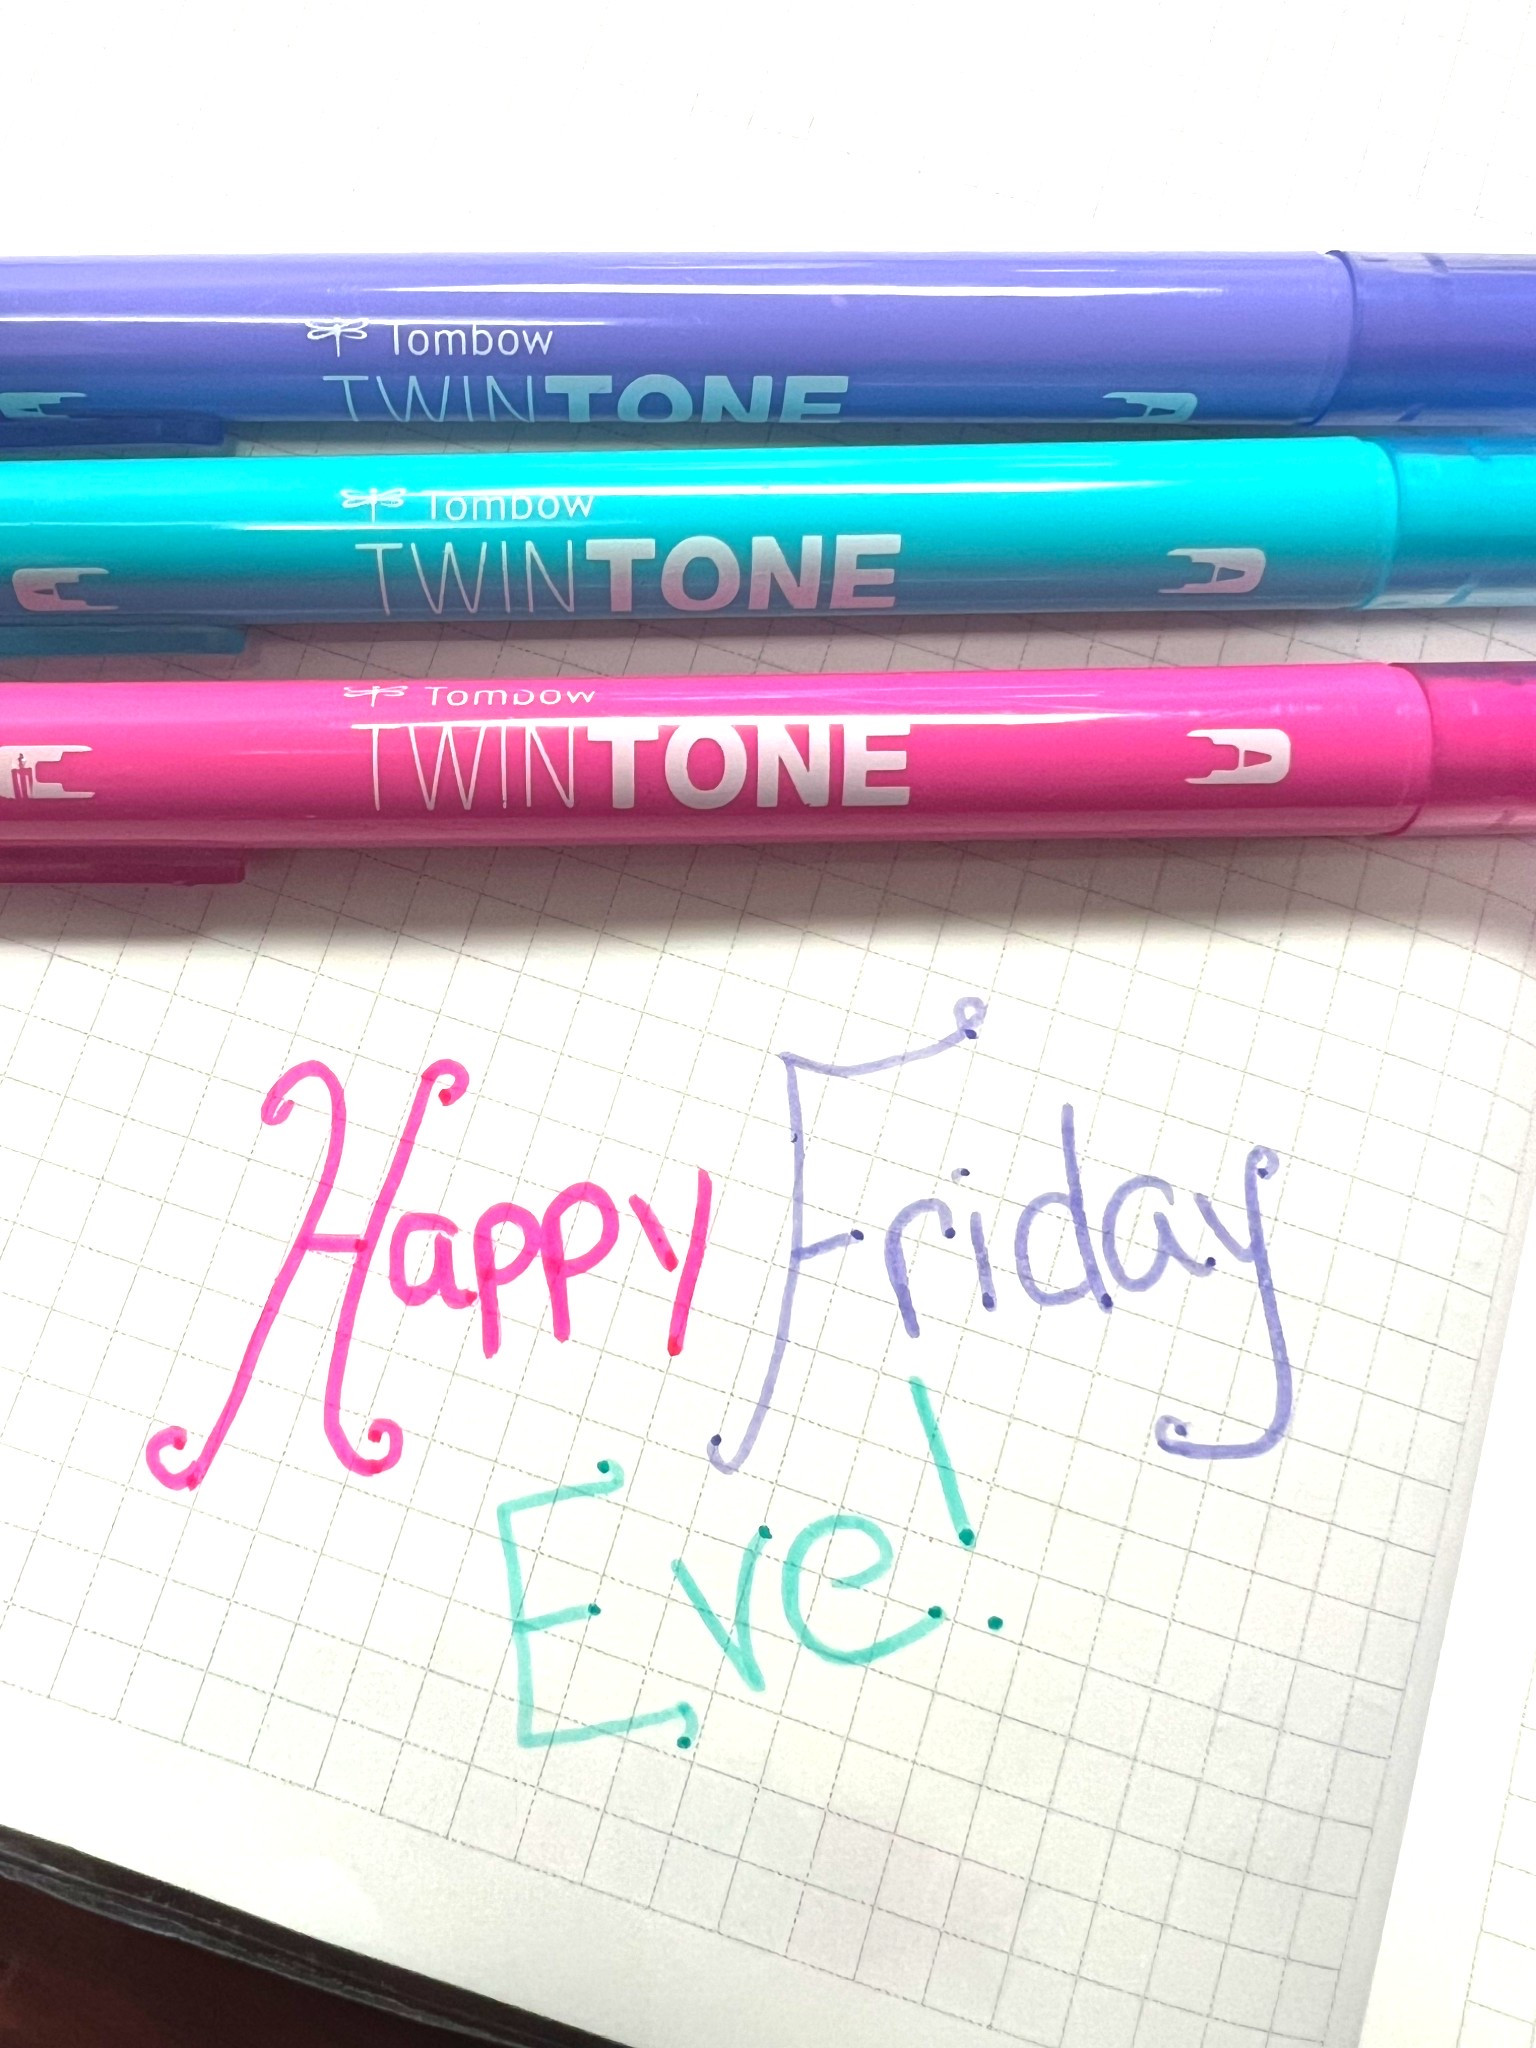 Tombow
TWINTONE
Tombow
TWINTONE
Tombow
TWINTONE
Happy Friday
Eve!